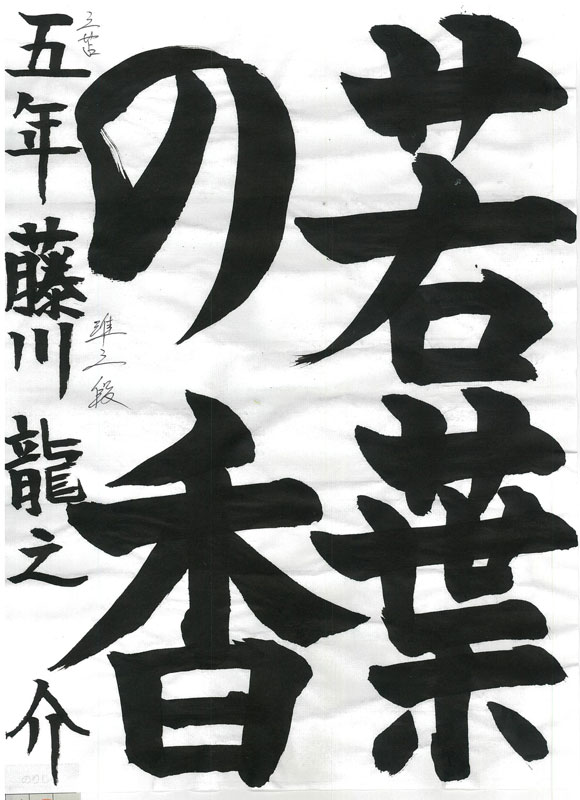 若葉
の香
準三段
五年 藤川 龍之介